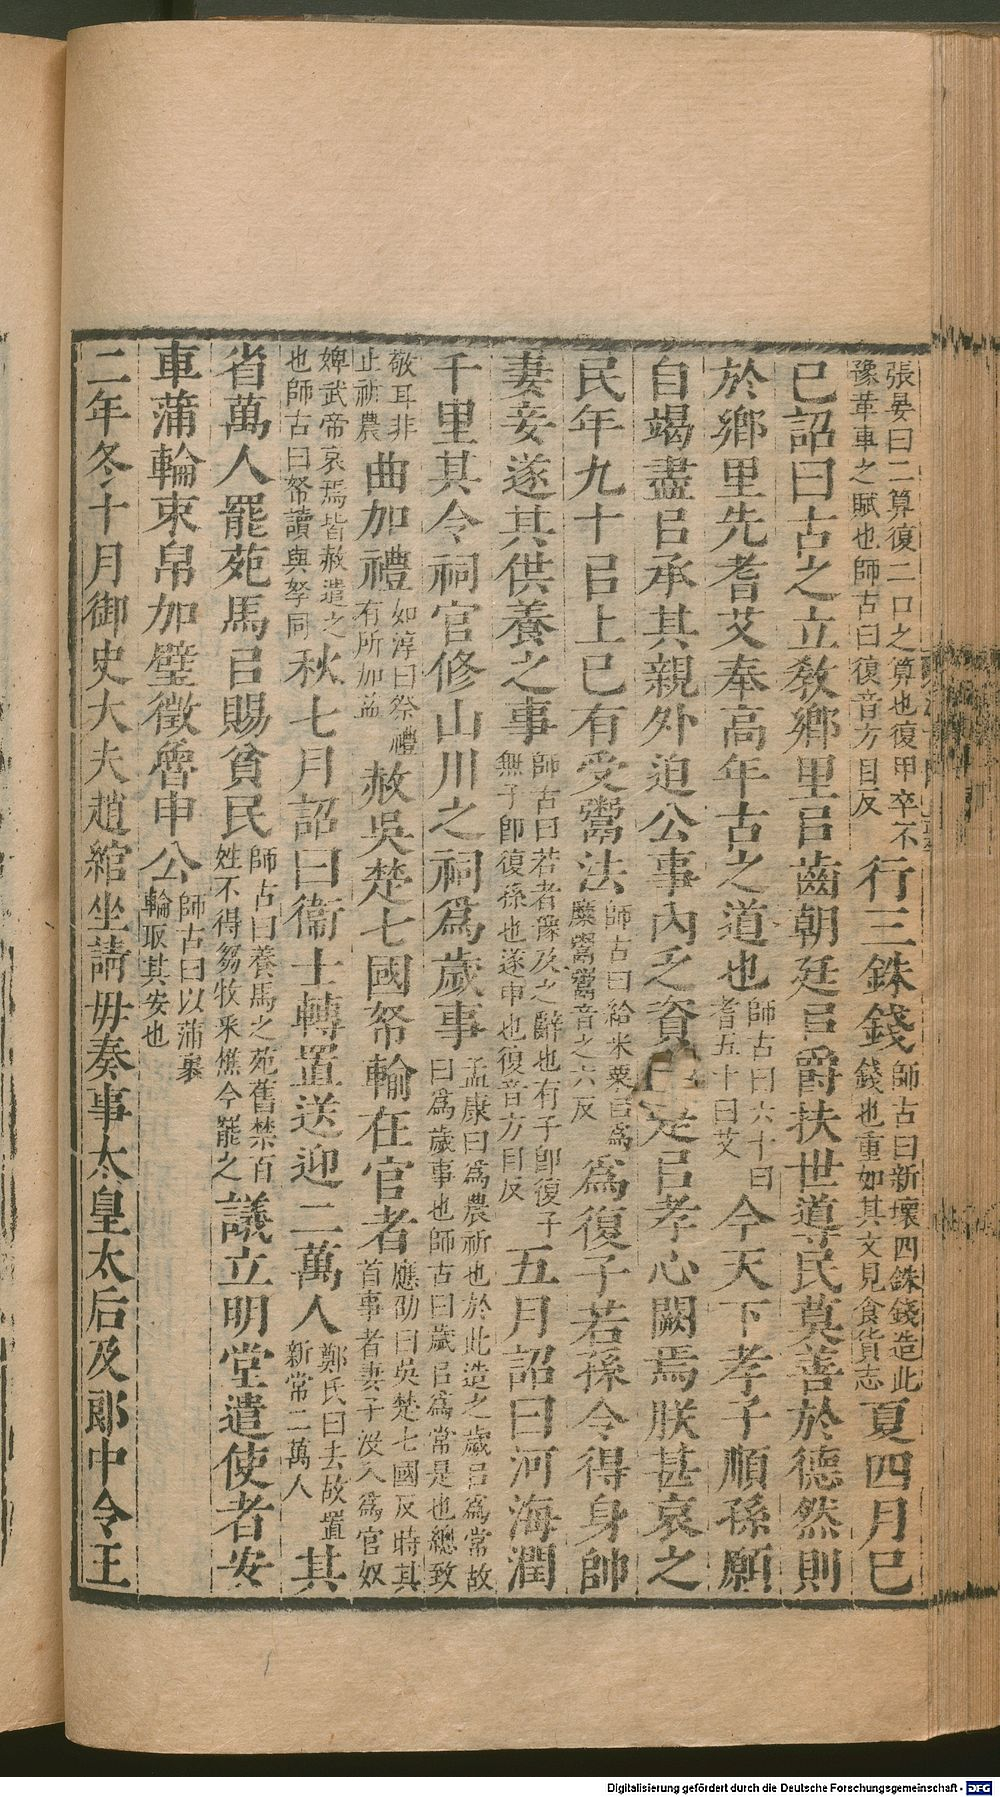 張晏曰二算復二口之算也復甲卒不
豫革車之賦也師古曰復音方目反
行三銖錢
師古曰新壞四銖錢造此
錢也重如其文見食貨志
夏四月己
巳詔曰古之立敎鄉里㠯齒朝廷㠯爵扶世導民莫善於德然則
於鄉里先耆艾奉高年古之道也
師古曰六十曰
耆五十曰艾
今天下孝子順孫願
自竭盡㠯承其親外迫公事內乏資
是㠯孝心闕焉朕甚哀之
民年九十㠯上已有受鬻法
師古曰給米粟㠯爲
糜鬻鬻音之六反
爲復子若孫令得身帥
妻妾遂其供養之事
師古曰若者豫及之辭也有子卽復子
無子卽復孫也遂申也復音方目反
五月詔曰河海潤
千里其令祠官修山川之祠爲歲事
孟康曰爲農祈也於此造之歲㠯爲常故
曰爲歲事也師古曰歲㠯爲常是也總致
敬耳非
止祈農
曲加禮
如淳曰祭禮
有所加益
赦吳楚七國帑輸在官者
應劭曰吳楚七國反時其
首事者妻子沒入爲官奴
婢武帝哀焉皆赦遣之
也師古曰帑讀與孥同
秋七月詔曰衞士轉置送迎二萬人
鄭氏曰去故置
新常二萬人
其
省萬人罷苑馬㠯賜貧民
師古曰養馬之苑舊禁百
姓不得芻牧采樵今罷之
議立明堂遣使者安
車蒲輪束帛加璧徵魯申公
師古曰以蒲裹
輪取其安也
二年冬十月御史大夫趙綰坐請毋奏事太皇太后及郞中令王
Digitalisierung gefördert durch die Deutsche Forschungsgemeinschaft - DFG